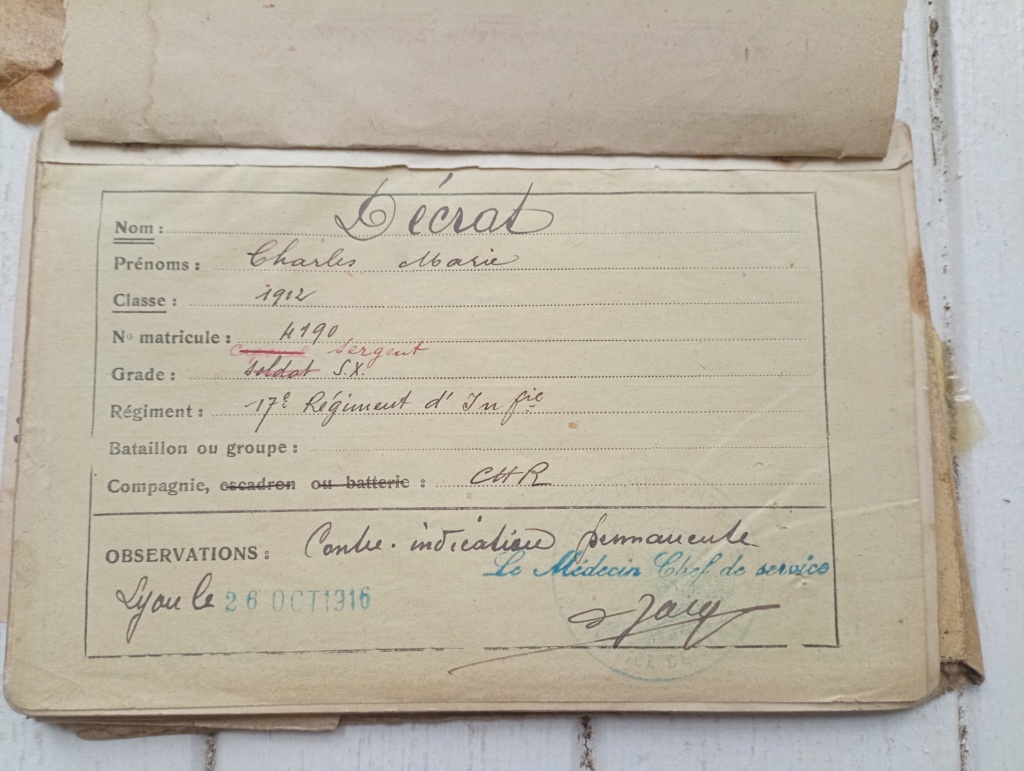 Nom : Décrat
Prénoms : Charles Marie
Classe : 1912
No matricule : 4190
Sergent
Grade : Soldat S.X.
Régiment : 17e Régiment d'Infie
Bataillon ou groupe :
Compagnie, escadron ou batterie : CHR
OBSERVATIONS : Contre-indication permanente
Le Médecin Chef de service
Lyon le 26 OCT 1916